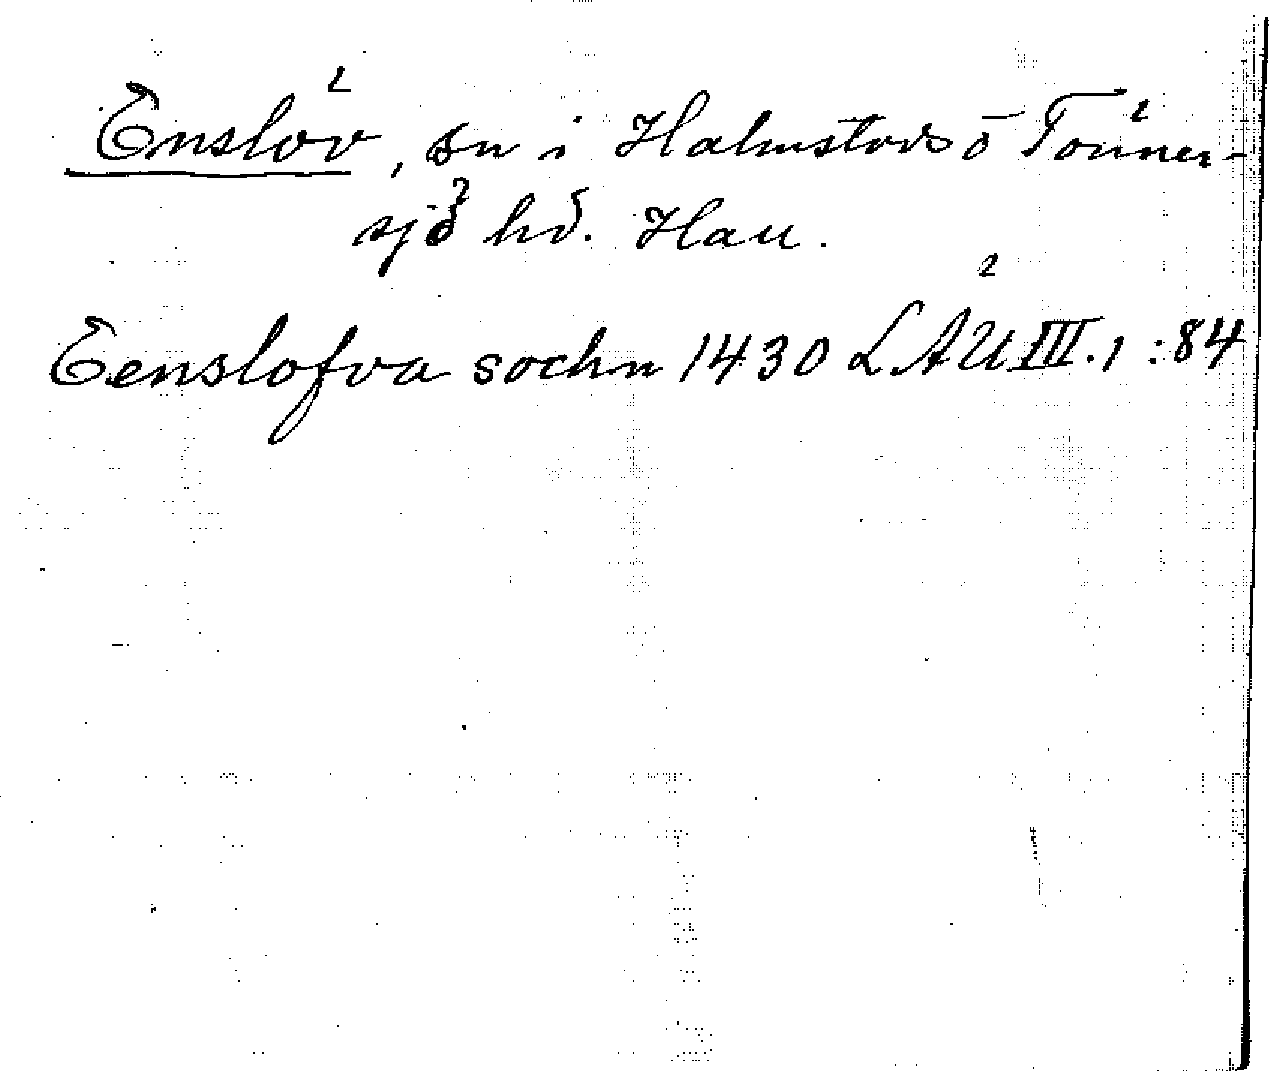 Enslöv, sn i Halmstads ö Tönner-
sjö hd. Hall.
Eenslofva sochn 1430 LÅU III.1:84